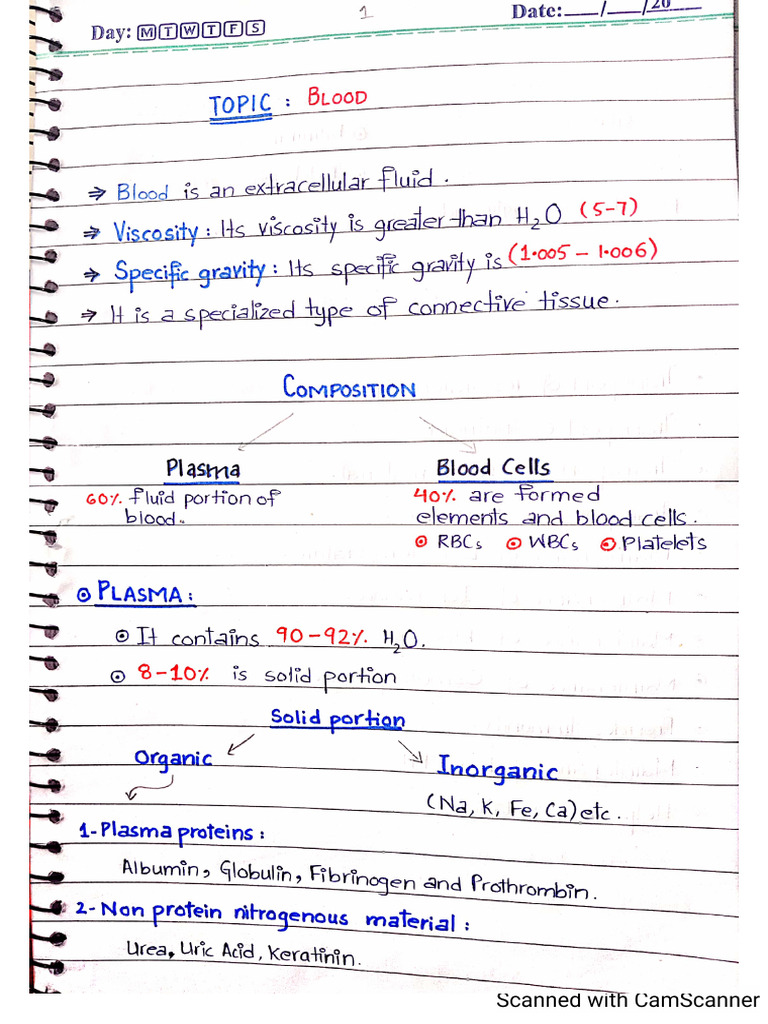 1
Day: M T W T F S
Date:___/___/20___
TOPIC : BLOOD
⇒ Blood is an extracellular fluid.
⇒ Viscosity: Its viscosity is greater than H₂O (5-7)
⇒ Specific gravity: Its specific gravity is (1.005 - 1.006)
⇒ It is a specialized type of connective tissue.
COMPOSITION
Plasma
60% fluid portion of
blood.
Blood Cells
40% are formed
elements and blood cells.
⊙ RBCs ⊙ WBCs ⊙ Platelets
⊙ PLASMA:
⊙ It contains 90-92% H₂O.
⊙ 8-10% is solid portion
Solid portion
Organic
Inorganic
(Na, K, Fe, Ca) etc.
1- Plasma proteins:
Albumin, Globulin, Fibrinogen and Prothrombin.
2- Non protein nitrogenous material:
Urea, Uric Acid, Keratinin.
Scanned with CamScanner